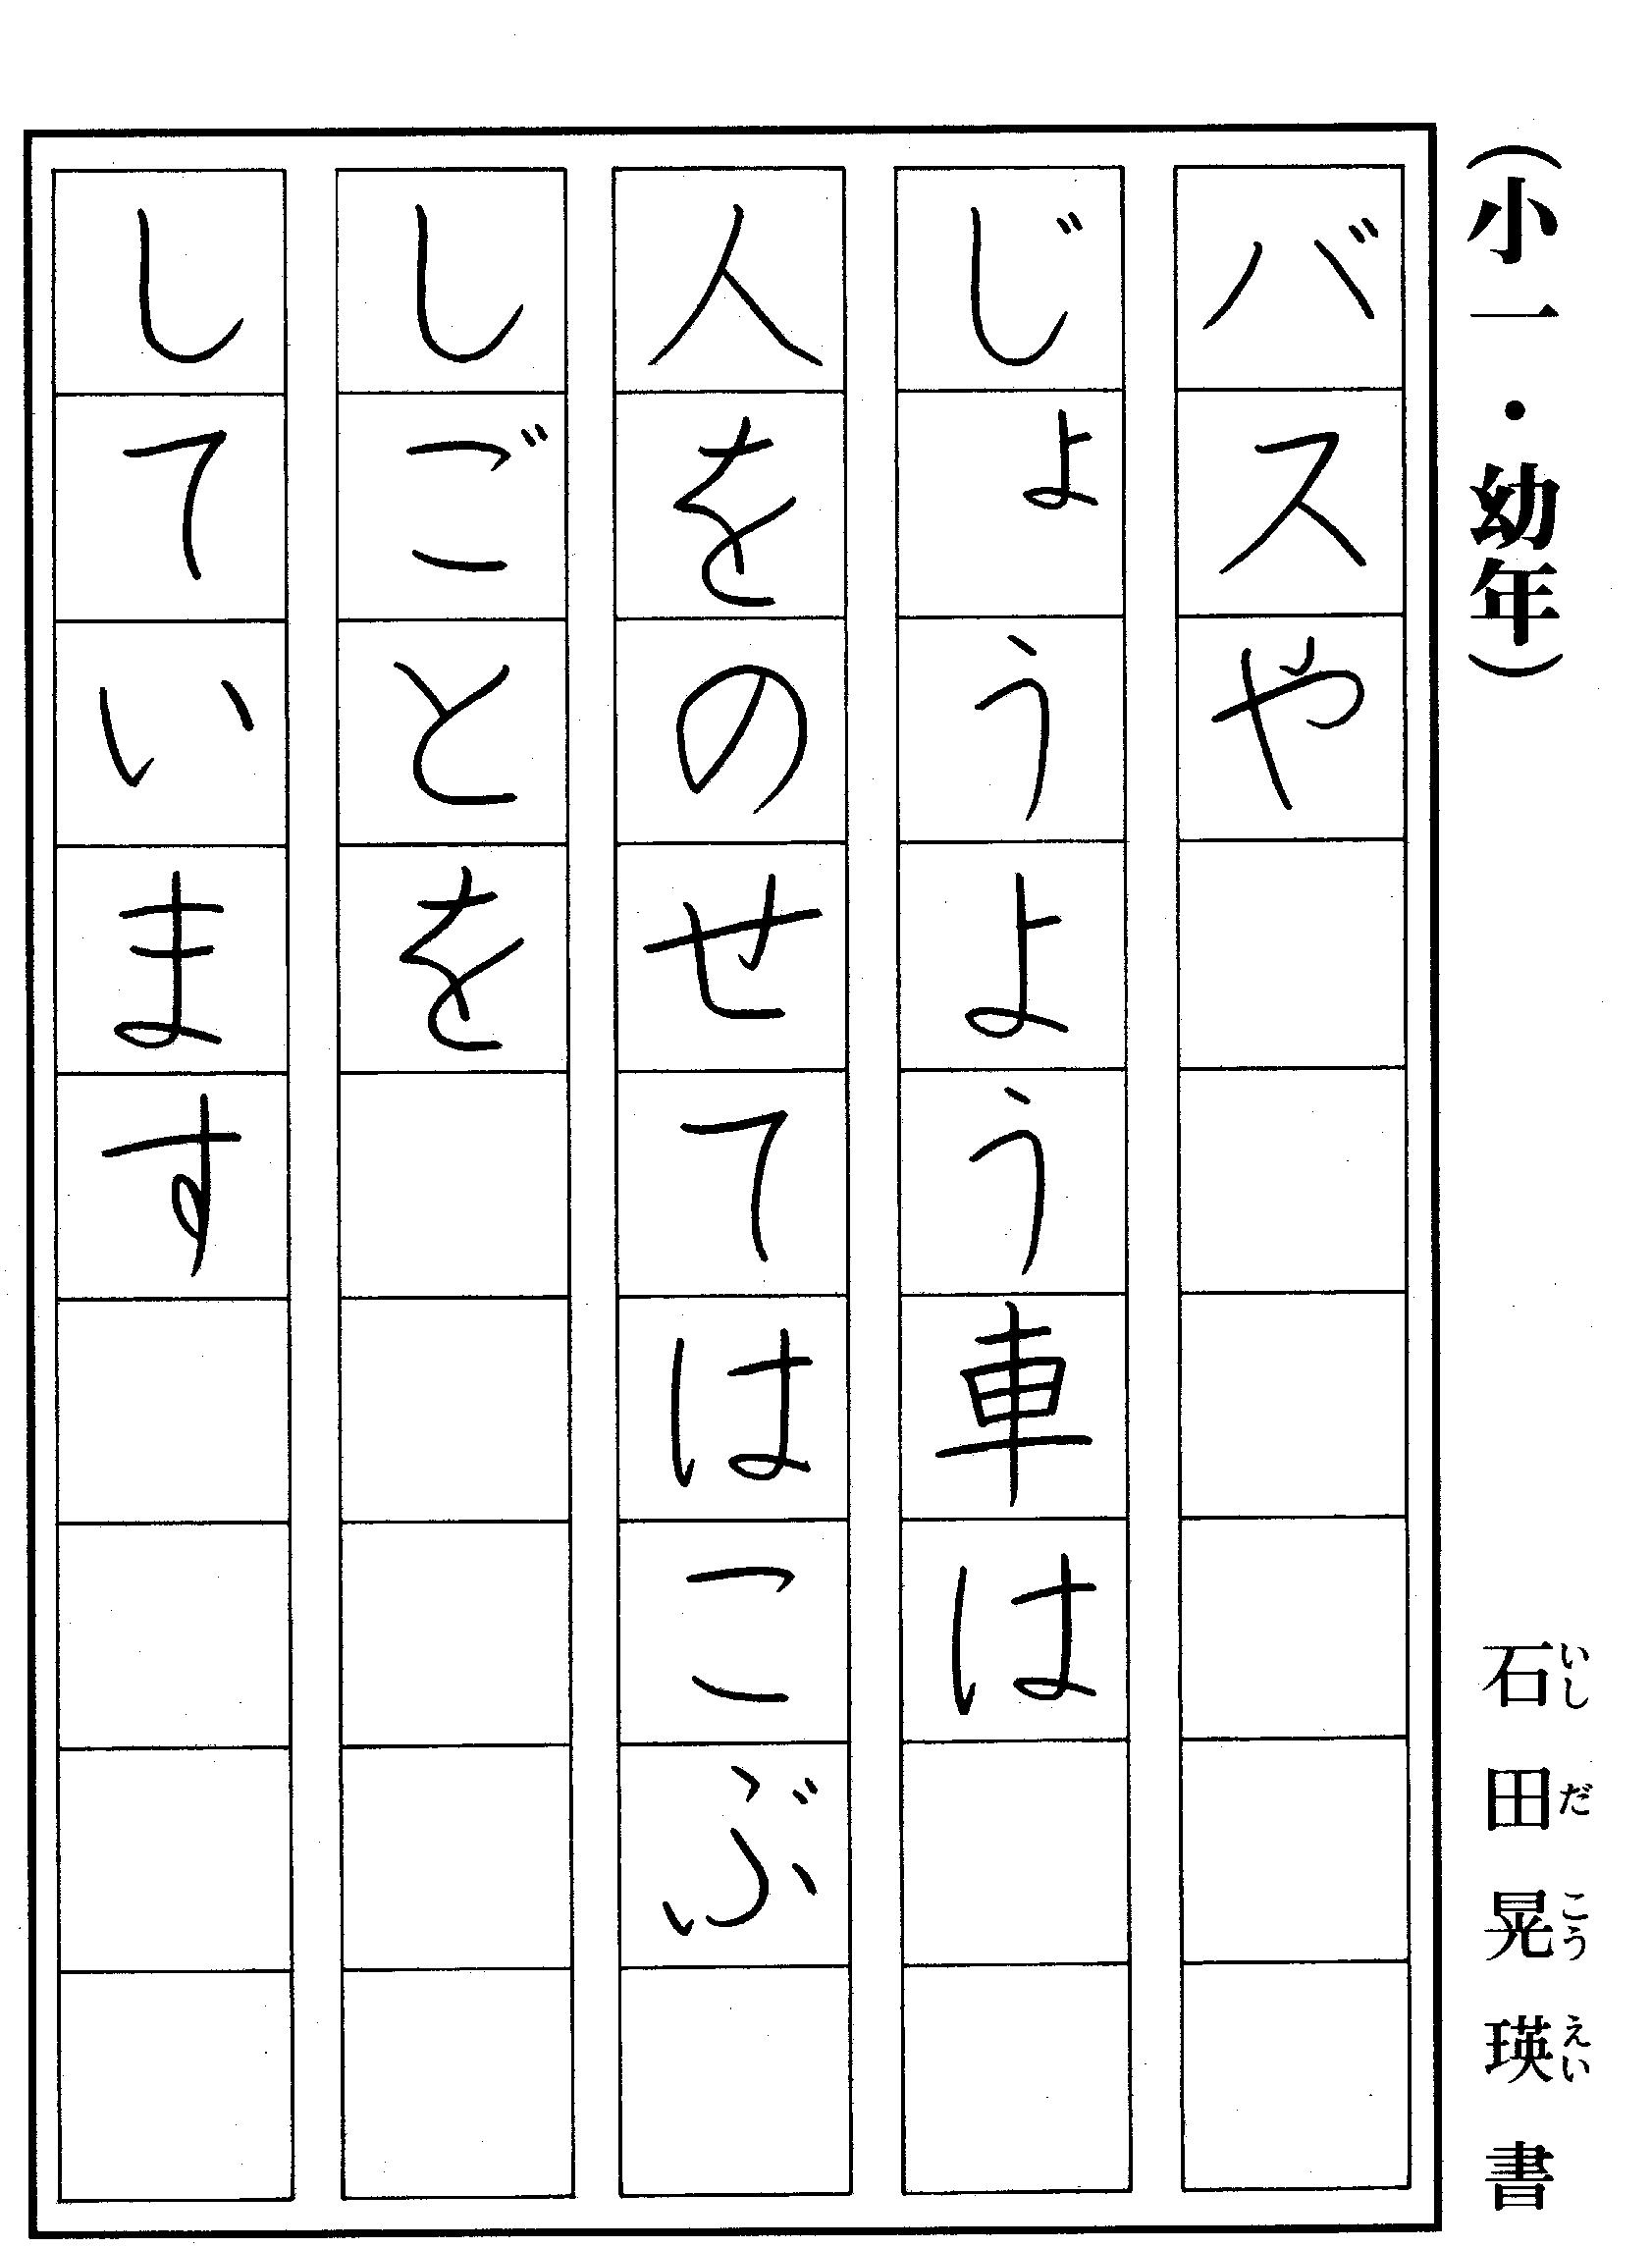 （小一・幼年）
石田晃瑛書
いしだこうえい
バスや
じょうよう車は
人をのせてはこぶ
しごとを
しています